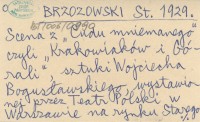 BRZOZOWSKI St. 1929.
Scena z „Cudu mniemanego"
czyli „Krakowiaków i Gó-
rali", sztuki Wojciecha
Bogusławskiego, wystawio-
nej przez Teatr Polski w
Warszawie na rynku Starego